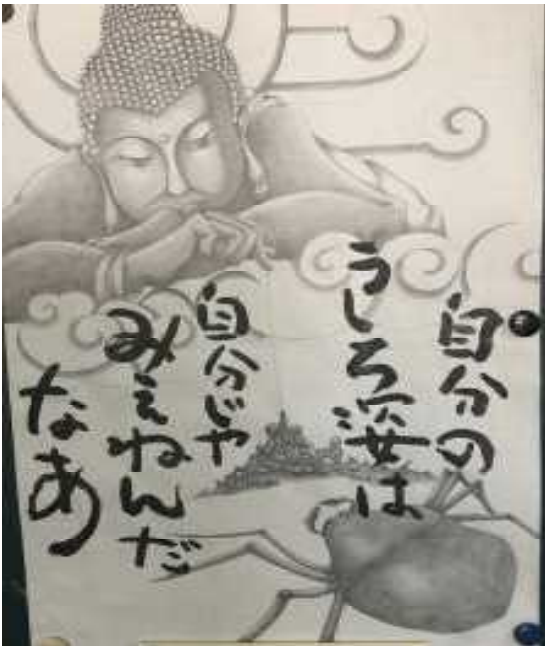 自分の
うしろ姿は
自分じゃ
みえねんだ
なあ